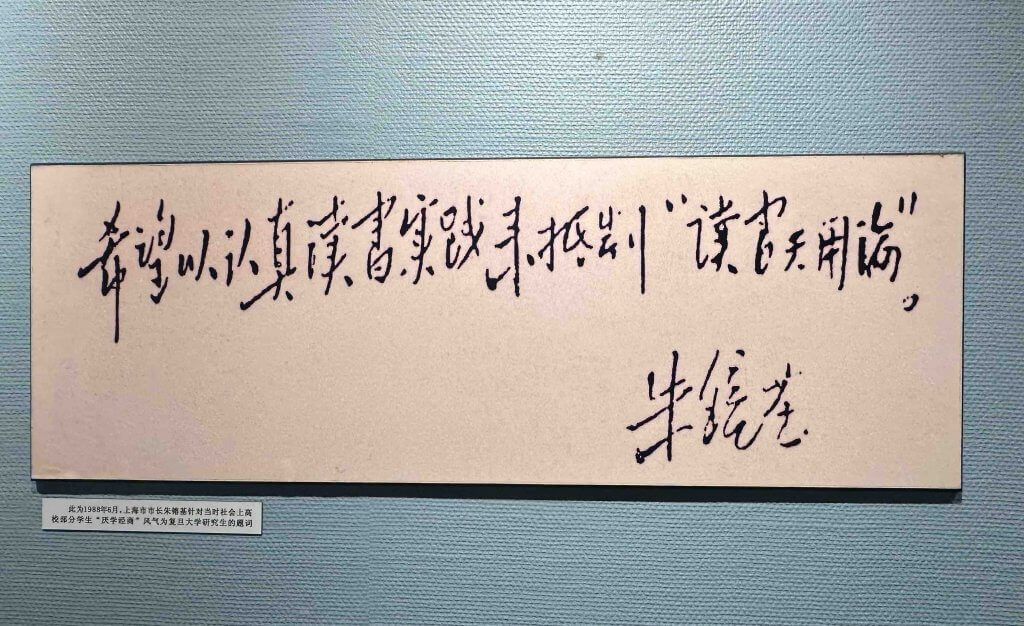 希望以认真读书实践来抵制“读书无用论”。
朱镕基
此为1988年6月，上海市市长朱镕基针对当时社会上高
校部分学生“厌学经商”风气为复旦大学研究生的题词